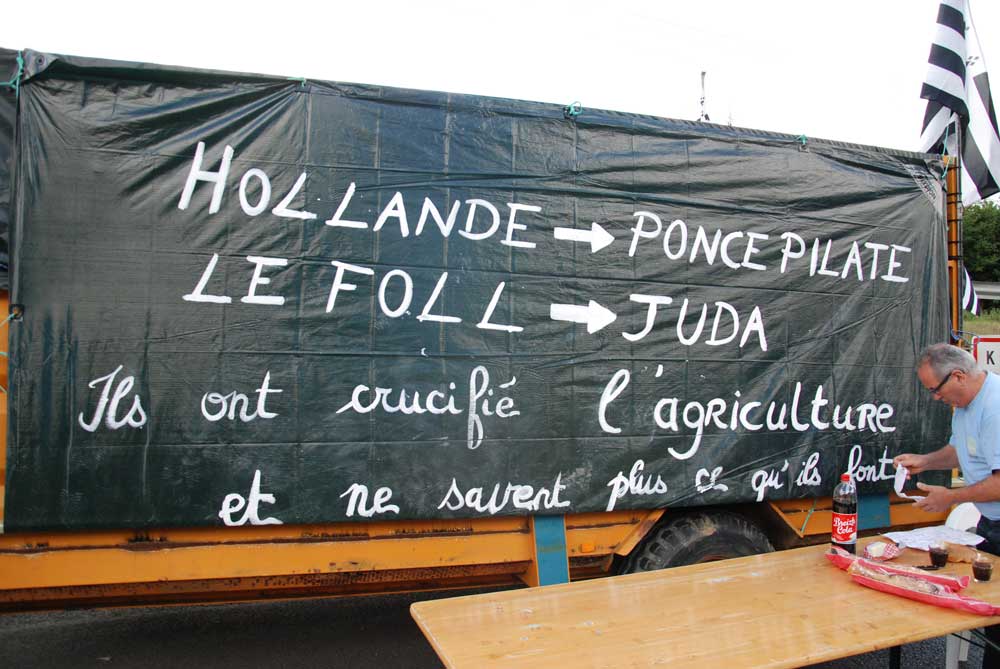 HOLLANDE → PONCE PILATE
LE FOLL → JUDA
Ils ont crucifié l'agriculture
et ne savent plus ce qu'ils font
Breizh
Cola
K